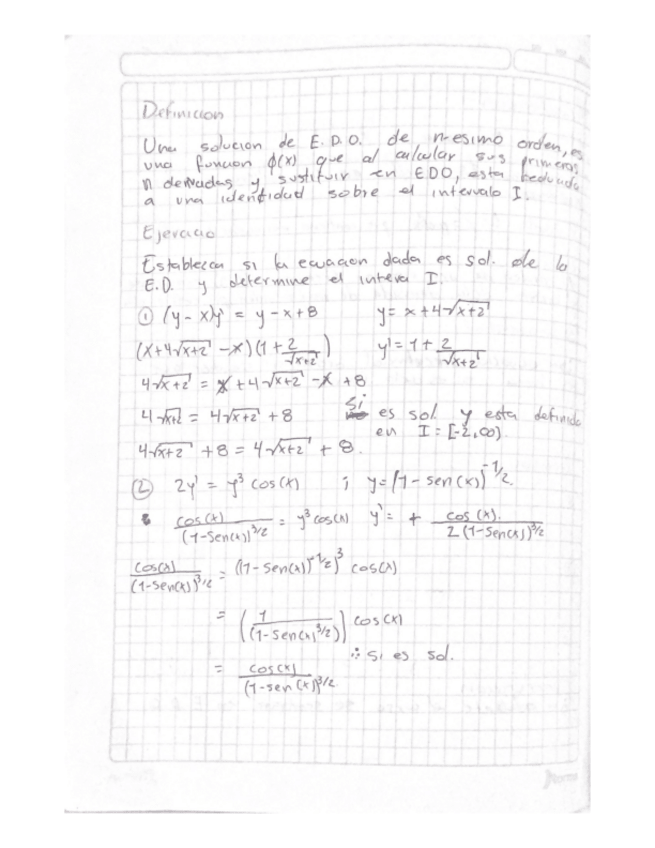 Definicion
Una solucion de E.D.O. de n-esimo orden, es
una funcion ϕ(x) que al calcular sus primeras
n derivadas y sustituir en EDO, esta reducida
a una identidad sobre el intervalo I.
Ejercicio
Establezca si la ecuacion dada es sol. de la
E.D. y determine el interva I.
① (y - x)y' = y - x + 8 y = x + 4√x+2
(x + 4√x+2 - x)(1 + 2/√x+2) y' = 1 + 2/√x+2
4√x+2 = x + 4√x+2 - x + 8
4√x+2 = 4√x+2 + 8 Si es sol y esta definida
en I = [-2, ∞)
4√x+2 + 8 = 4√x+2 + 8.
② 2y' = y³ cos(x) ; y = (1 - sen(x))^-1/2.
cos(x)/(1-Sen(x))^3/2 = y³ cos(x) y' = + cos(x)./2(1-Sen(x))^3/2
cos(x)/(1-Sen(x))^3/2 = ((1 - Sen(x))^-1/2)³ cos(x)
= (1/(1-Sen(x)^3/2)) cos(x)
∴ Si es sol.
= cos(x)/(1-sen(x))^3/2